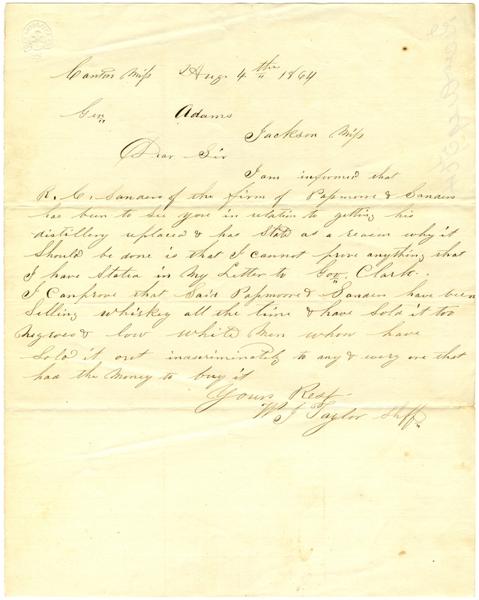 Canton Miss Aug 4th 1864
Gen Adams
Jackson Miss
Dear Sir
I am informed that
R. C. Sanders of the firm of & Sanders
has been to see you in relation to getting his
distillery replaced & has Stated as a reason why it
Should be done is that I cannot prove anything that
I have Stated in My Letter to Gov. Clark.
I can prove that Said & Sanders have been
Selling whiskey all the time & have sold it too
Negroes & low white Men whom have
Sold it out inascriminately to any & every one that
had the Money to buy it
Yours Resp
W J Taylor Shff